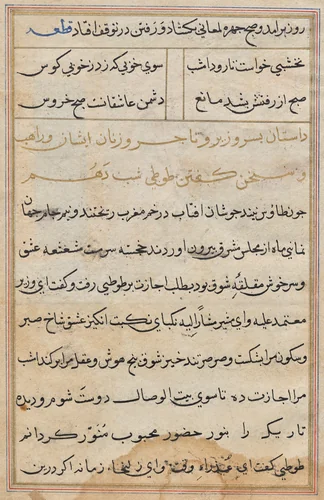 روز برآمد و صبح چهره لمعانی بکشاد و رفتن در توقف افتاد قطعه
نخشبی خواست تا رود امشب سوی خوبی که زد ز خوبی کوس
صبح از رفتنش بشد مانع دشمن عاشقانست صبح خروس
داستان بسر وزیر و تاجر و زنان ایشان و راهب
و سخن کفتن طوطی شب دهم
چون طاوس تیز جوشان آفتاب در خم مغرب ریختند و نیم جام جهان
نمایی ماه از مجلس مشرق بیرون آوردند خجسته سرمست شعشعه عشق
و سرخوش مقلقه شوق بود بطلب اجازت بر طوطی رفت و کفت ای وزیر
معتمد علیه و ای مشیر مشار الیه نکبای نکبت انکیز عشق شاخ صبر
و سکون مرا بشکست و صرصر تند خیز شوق بیخ هوش و عقل مرا برکند امشب
مرا اجازت ده تا سوی بیت الوصال دوست شوم و دیده
تاریک را بنور حضور محبوب منور کردانم
طوطی کفت ای عذراء وقت و ای زلیخا زمانه اکر درین